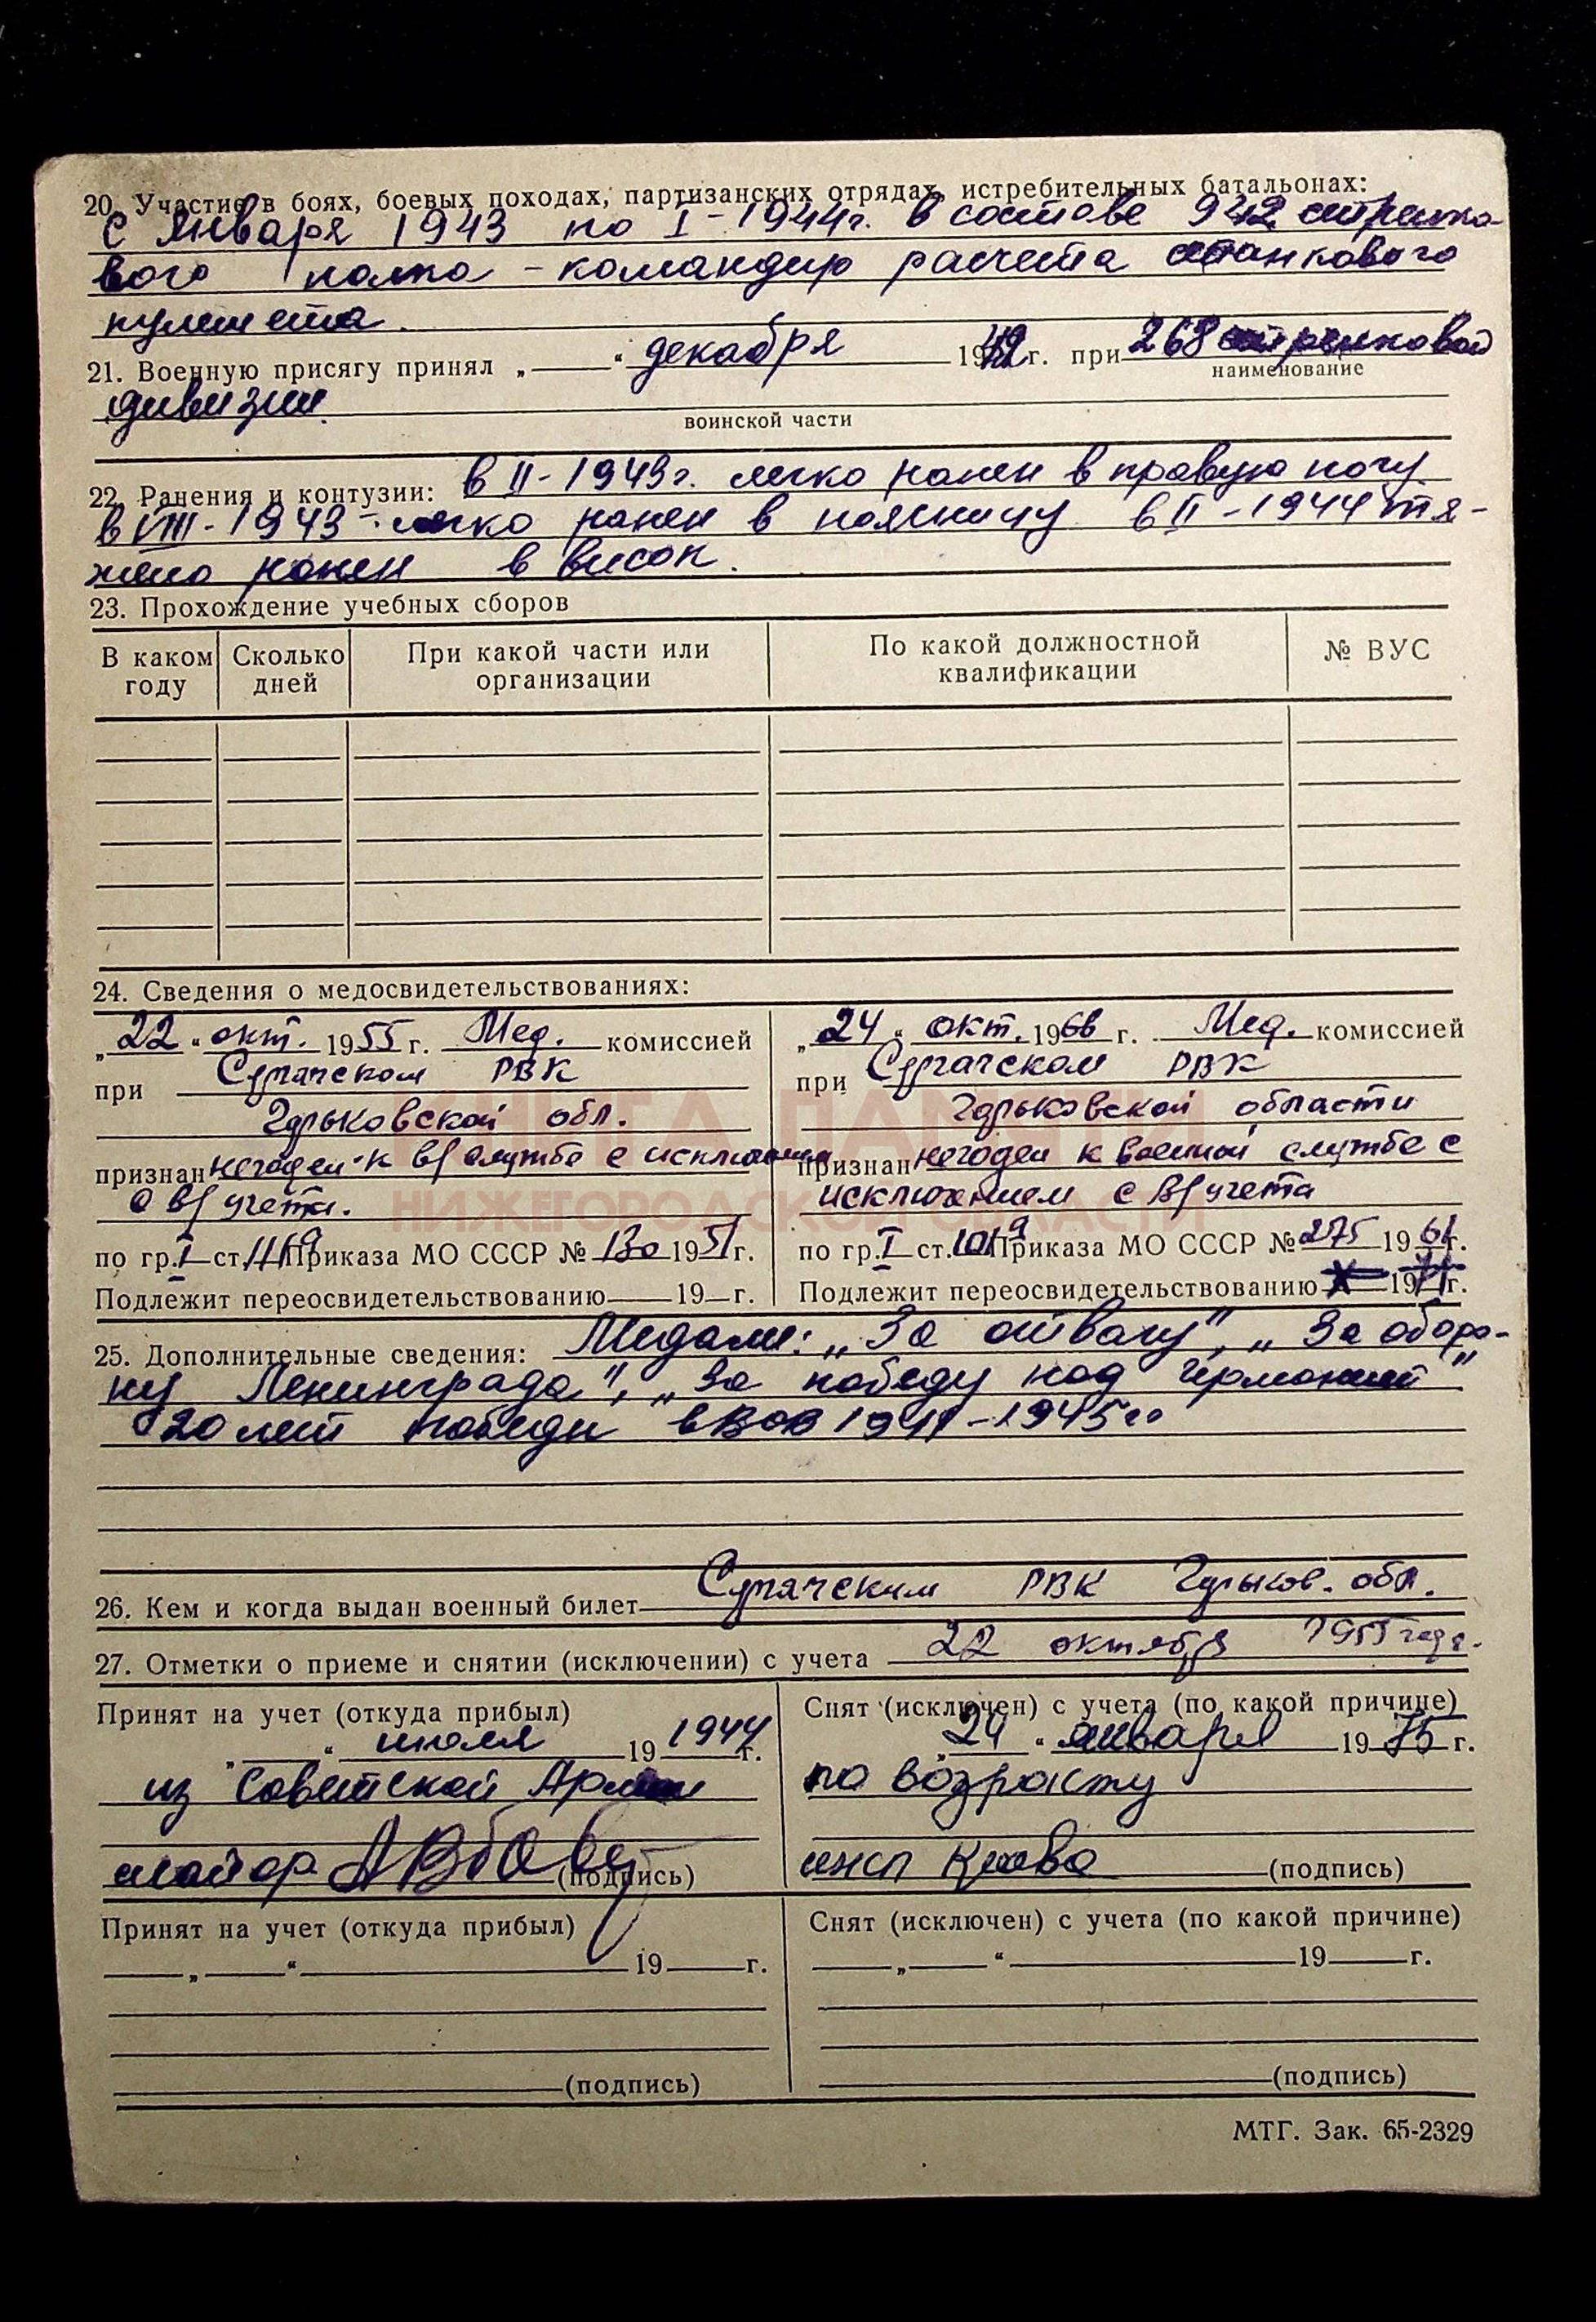 20. Участие в боях, боевых походах, партизанских отрядах, истребительных батальонах:
С Января 1943 по I - 1944г. в составе 942 стрелко-
вого полка - командир расчета станкового
пулемета.
21. Военную присягу принял „ “ декабря 1942 г. при 268 стрелковой
наименование
дивизии.
воинской части
22. Ранения и контузии: в II - 1943г. легко ранен в правую ногу
в VIII - 1943 - легко ранен в поясницу в II - 1944 тя-
жело ранен в висок.
23. Прохождение учебных сборов
В каком году Сколько дней При какой части или организации По какой должностной квалификации № ВУС
24. Сведения о медосвидетельствованиях:
„22“ окт. 1955 г. Мед. комиссией
при Сергачском РВК
Горьковской обл.
признан негоден к в/службе с исключением
с в/учета.
по гр. I ст. Приказа МО СССР № 130 1951 г.
Подлежит переосвидетельствованию 19 г.
„24“ окт. 1966 г. Мед. комиссией
при Сергачском РВК
Горьковской области
признан негоден к военной службе с
исключением с в/учета
по гр. I ст. Приказа МО СССР № 275 1961 г.
Подлежит переосвидетельствованию 19 г.
25. Дополнительные сведения: Медали: „За отвагу“, „За оборо-
ну Ленинграда“, „За победу над Германией“
20 лет победы в ВОВ 1941-1945гг
26. Кем и когда выдан военный билет Сергачским РВК Горьков. обл.
22 октября 1955 года.
27. Отметки о приеме и снятии (исключении) с учета
Принят на учет (откуда прибыл)
„ “ июля 1944 г.
из Советской Армии
майор (подпись)
Снят (исключен) с учета (по какой причине)
„24“ января 1975 г.
по возрасту
(подпись)
Принят на учет (откуда прибыл)
„ “ 19 г.
(подпись)
Снят (исключен) с учета (по какой причине)
„ “ 19 г.
(подпись)
МТГ. Зак. 65-2329
КНИГА ПАМЯТИ
НИЖЕГОРОДСКОЙ ОБЛАСТИ